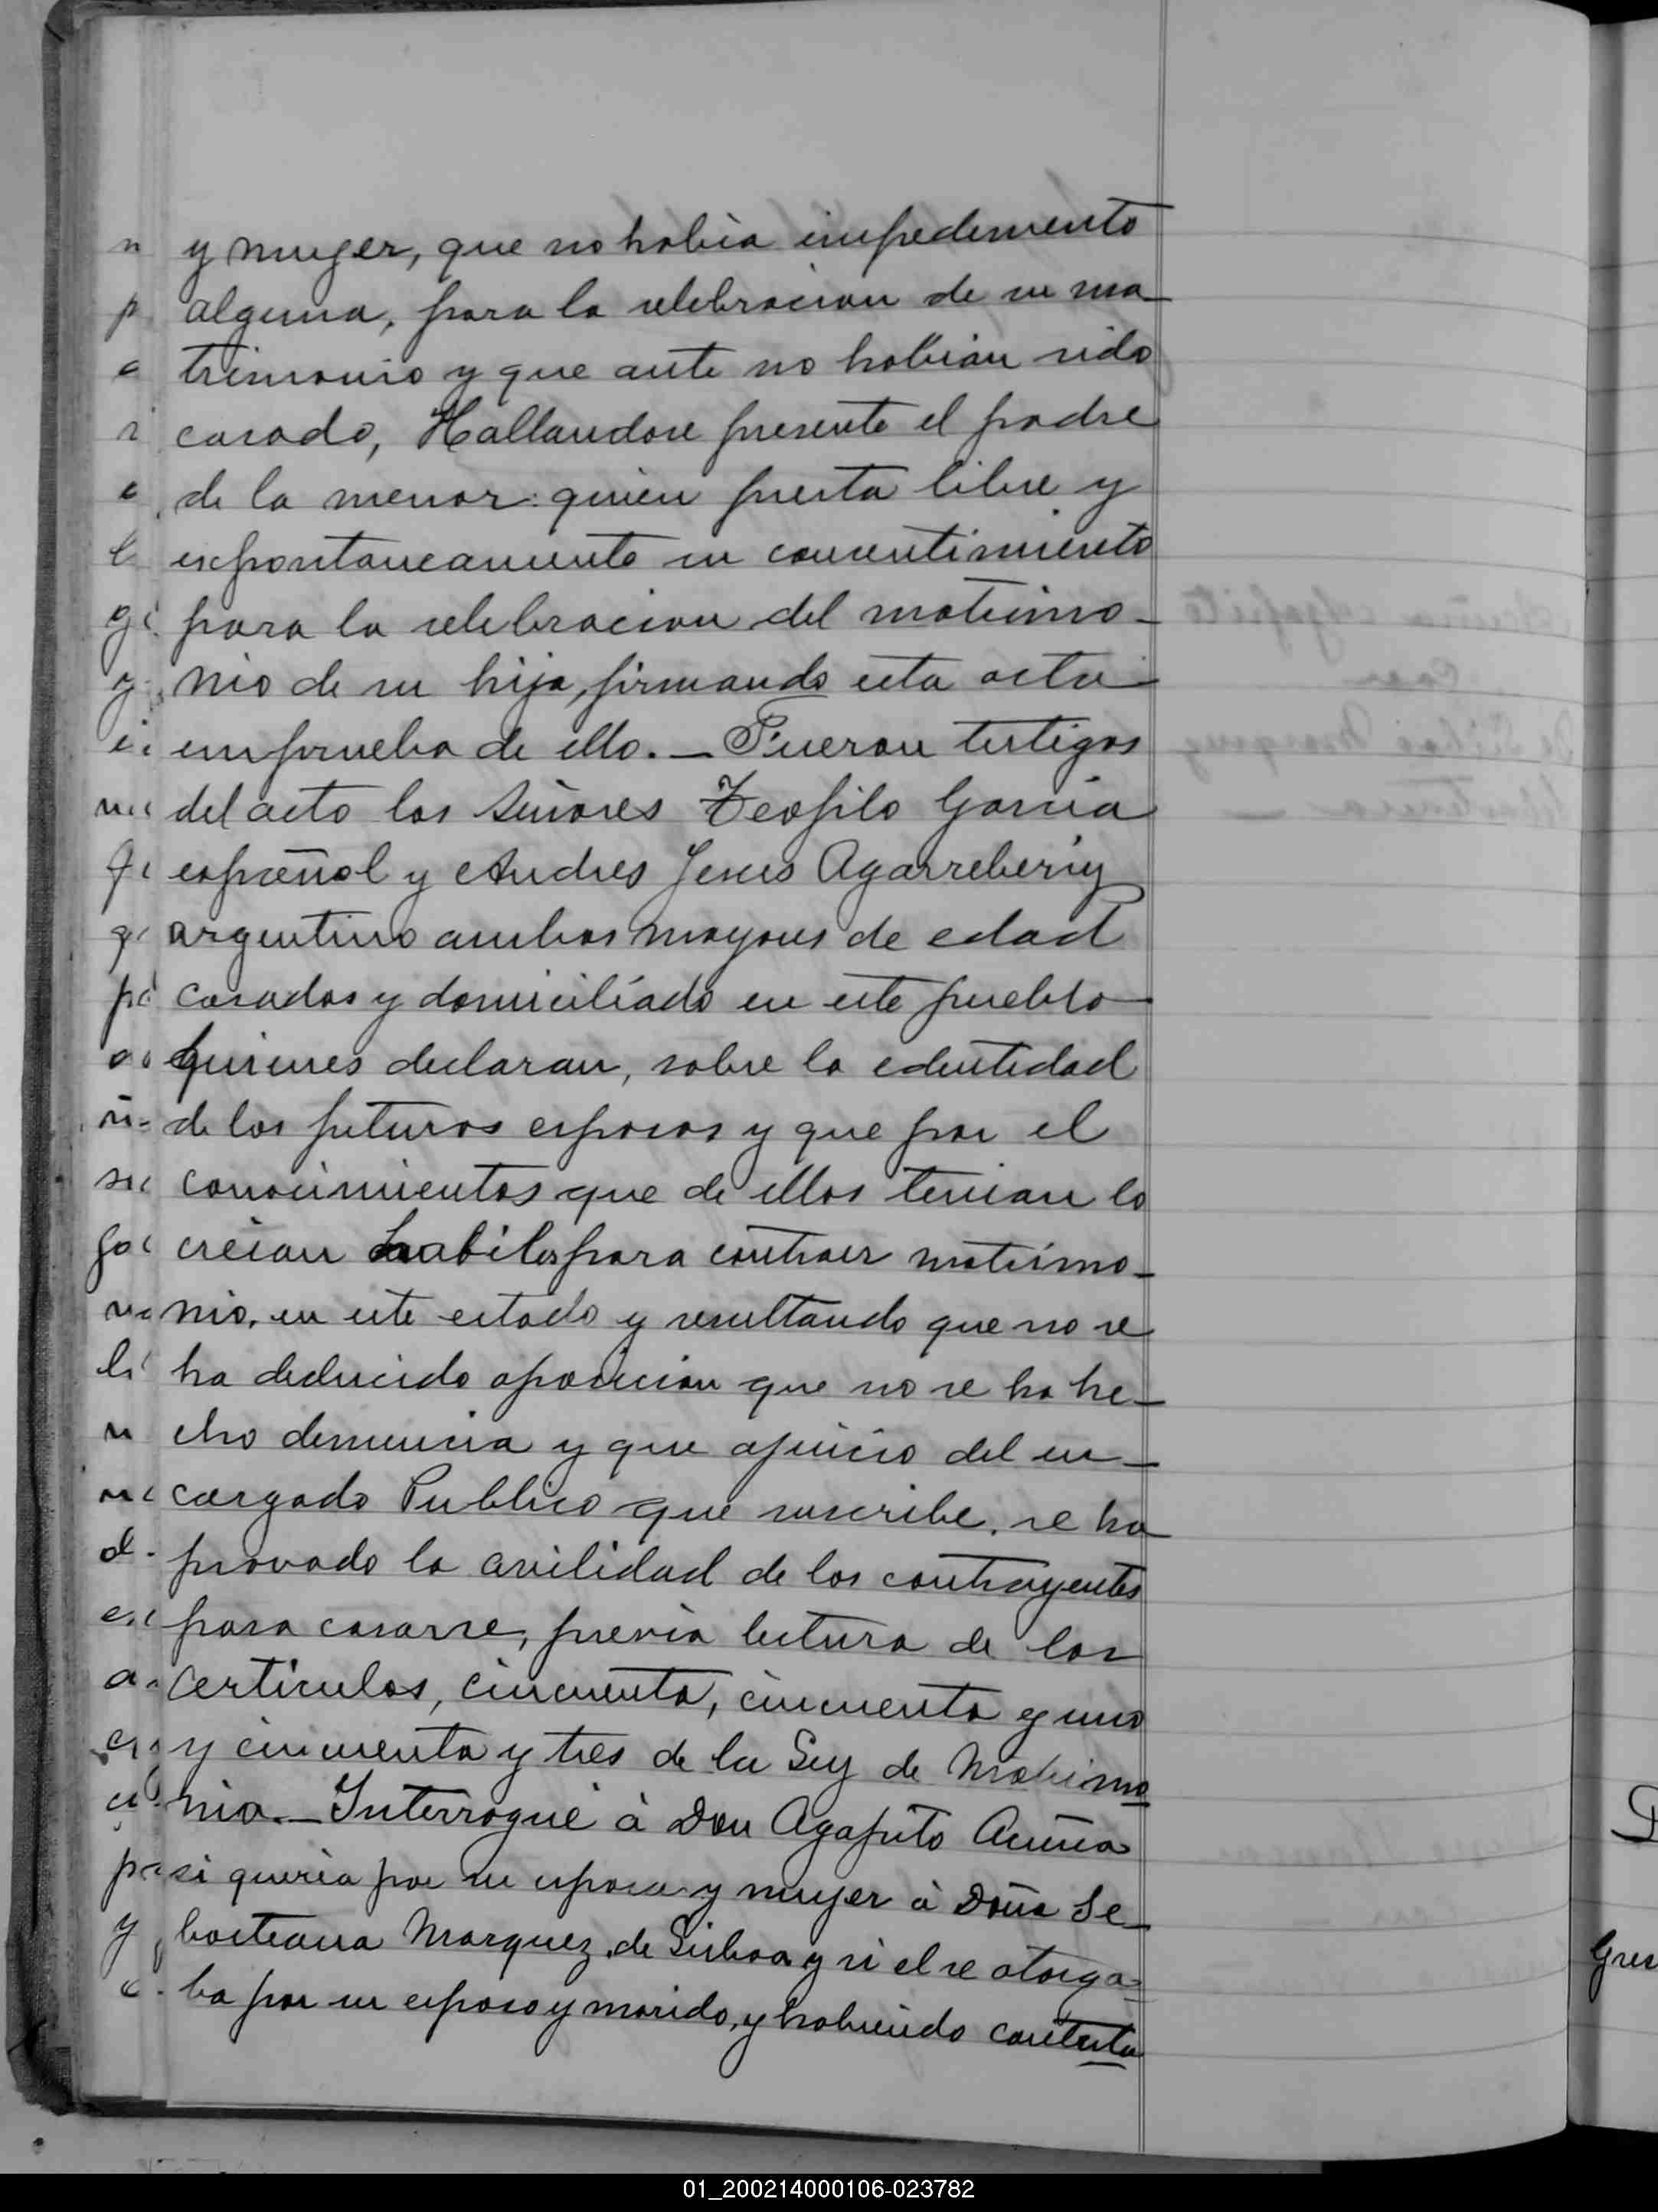 y muger, que no habia impedemento
alguna, para la celebracion de su ma-
trimonio y que ante no habian sido
casado, Hallandose presente el padre
de la menor: quien presta libre y
espontaneamente su consentimiento
para la celebracion del matrimo-
nio de su hija, firmando esta acta
en prueba de ello. — Fueron testigos
del acto los Señores Teofilo Garcia
español y Andres Jesus Agarreberiy
argentino ambos mayores de edad
casados y domiciliado en este pueblo
Quienes declaran, sobre la edentidad
de los futuros esposos y que por el
conocimientos que de ellos tenian lo
creian habiles para contraer matrimo-
nio, en este estado y resultando que no se
ha deducido oposicion que no se ha he-
cho denuncia y que ajuicio del en-
cargado Publico que suscribe, se ha
provado la avilidad de los contrayentes
para casarse, previa lectura de los
articulos, cincuenta, cincuenta y uno
y cincuenta y tres de la Ley de Matrimo
nio. — Interrogué à Don Agapito Acuña
si queria por su esposa y mujer à Doña Se-
bastiana Marquez de Lisboa y si el se otorga-
ba por su esposo y marido, y habiendo contesta
01_200214000106-023782